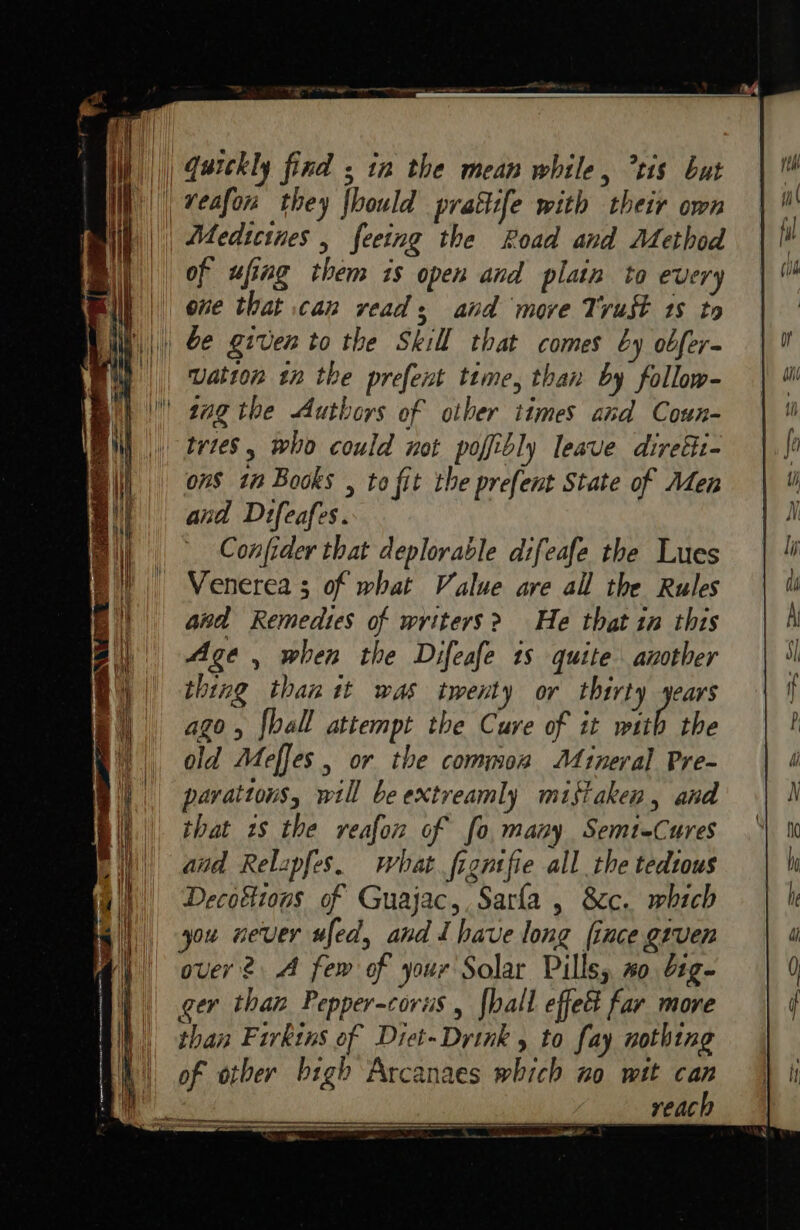 quickly find ; in the mean while, 'tis but
reaſon they ſhould practiſe with their own
Medicines , ſeeing the Road and Method
of uſing them is open and plain to every
one that can read ; and more Truſt is to
be given to the Skill that comes by obſer-
vation in the preſent time, than by follow-
ing the Authors of other times and Coun-
tries, who could not poſſibly leave directi-
ons in Books , to fit the preſent State of Men
and Diſeaſes.
Conſider that deplorable diſeaſe the Lues
Venerea ; of what Value are all the Rules
and Remedies of writers? He that in this
Age , when the Diſeaſe is quite another
thing than it was twenty or thirty years
ago , ſhall attempt the Cure of it with the
old Meſſes , or the common Mineral Pre-
parations, will be extreamly miſtaken, and
that is the reaſon of ſo many Semi-Cures
and Relapſes. What ſignifie all the tedious
Decoctions of Guajac, Sarſa , &c. which
you never uſed, and I have long ſince given
over ? A few of your Solar Pills, no big-
ger than Pepper-corns , ſhall effect far more
than Firkins of Diet-Drink , to ſay nothing
of other high Arcanaes which no wit can
reach